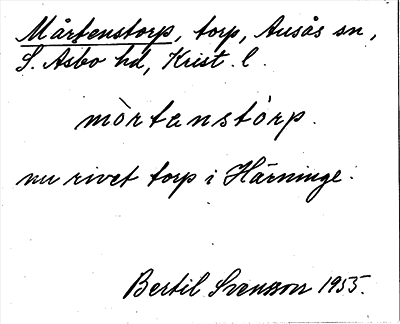 Mårtenstorp, torp, Ausås sn,
S. Åsbo hd, Krist. l.
mòrtenstórp.
nu rivet torp i Härninge.
Bertil Svensson 1955.